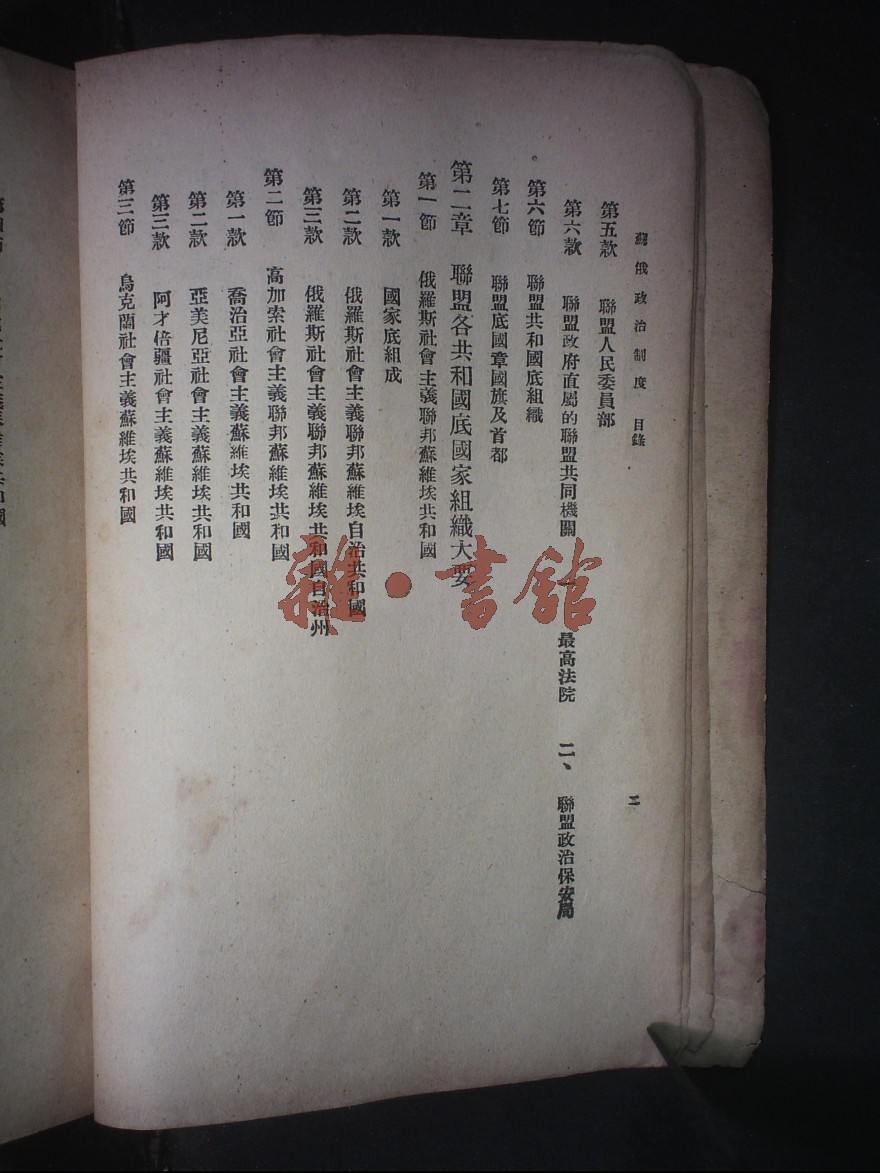 蘇俄政治制度 目錄 二
第五款 聯盟人民委員部
第六款 聯盟政府直屬的聯盟共同機關 一、最高法院 二、聯盟政治保安局
第六節 聯盟共和國底組織
第七節 聯盟底國章國旗及首都
第二章 聯盟各共和國底國家組織大要
第一節 俄羅斯社會主義聯邦蘇維埃共和國
第一款 國家底組成
第二款 俄羅斯社會主義聯邦蘇維埃自治共和國
第三款 俄羅斯社會主義聯邦蘇維埃共和國自治州
第二節 高加索社會主義聯邦蘇維埃共和國
第一款 喬治亞社會主義蘇維埃共和國
第二款 亞美尼亞社會主義蘇維埃共和國
第三款 阿才倍疆社會主義蘇維埃共和國
第三節 烏克蘭社會主義蘇維埃共和國
雜·書館